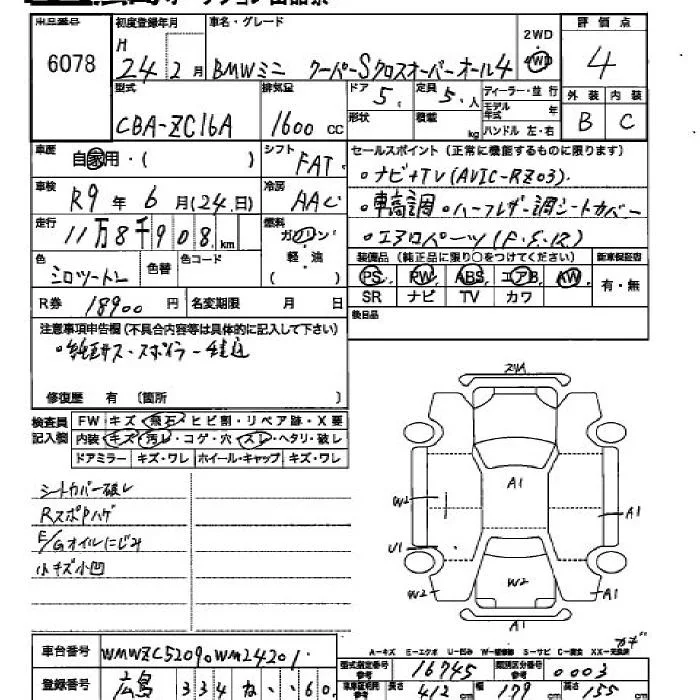 出品番号 初度登録年月 車名・グレード 2WD 4WD 評価点
6078 H 24年 2月 BMWミニ クーパーSクロスオーバーオール4 4
型式 排気量 ドア 定員 ディーラー・並行 外装 内装
CBA-ZC16A 1600cc 5 5人 モデル年式 年 B C
形状 積載 kg ハンドル 左・右
車歴 自家用・( ) シフト FAT セールスポイント(正常に機能するものに限ります)
車検 R9年 6月(24.日) 冷房 AAC ・ナビ+TV(AVIC-RZ03).
・車高調 ・ハーフレザー調シートカバー
走行 11万8千908km 燃料 ガソリン 軽・油 ( ) ・エアロパーツ(F.S.R)
色 シロツートン 色替 色コード 装備品(純正品に限り○をつけてください) 新車保証書
PS PW ABS エアB AW 有・無
R券 18900円 名変期限 月 日 SR ナビ TV カワ
注意事項申告欄(不具合内容等は具体的に記入して下さい) 後日品
・純正サス・スポイラー積込
修復歴 有 〔箇所 〕
検査員記入欄 FW キズ・飛石・ヒビ割・リペア跡・X要
内装 キズ・汚レ・コゲ・穴・スレ・ヘタリ・破レ
ドアミラー キズ・ワレ ホイール・キャップ キズ・ワレ
シートカバー破レ
RスポPハゲ
E/Gオイルにじみ
小キズ小凹
A1
W2
A1
U1
W2
W2
A1
A1
A-キズ E-エクボ U-凹み W-補修跡 S-サビ C-腐食 XX-交換済
車台番号 WMWZC52090WM24201 型式指定番号 参考 16745 類別区分番号 参考 0003
登録番号 広島 334 ね ・・60 車車証明用 参考 長さ 412cm 幅 179cm 高さ 155cm